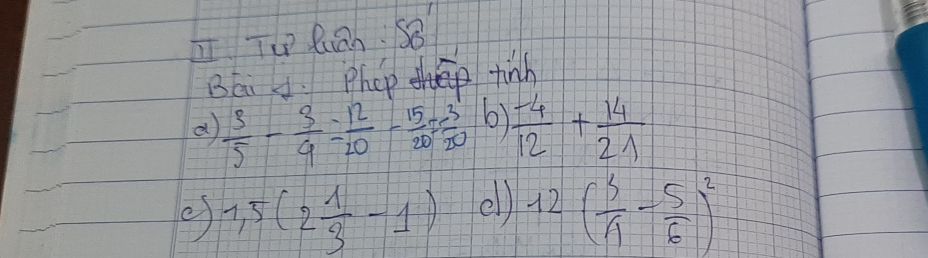 II. Tự luận: Số
Bài 1: Phép tính
a) 3/5 - 3/4 = 12/20 - 15/20 = -3/20 b) -4/12 + 14/21
c) 1,5 (2 1/3 - 1) d) 12 (3/4 - 5/6)²